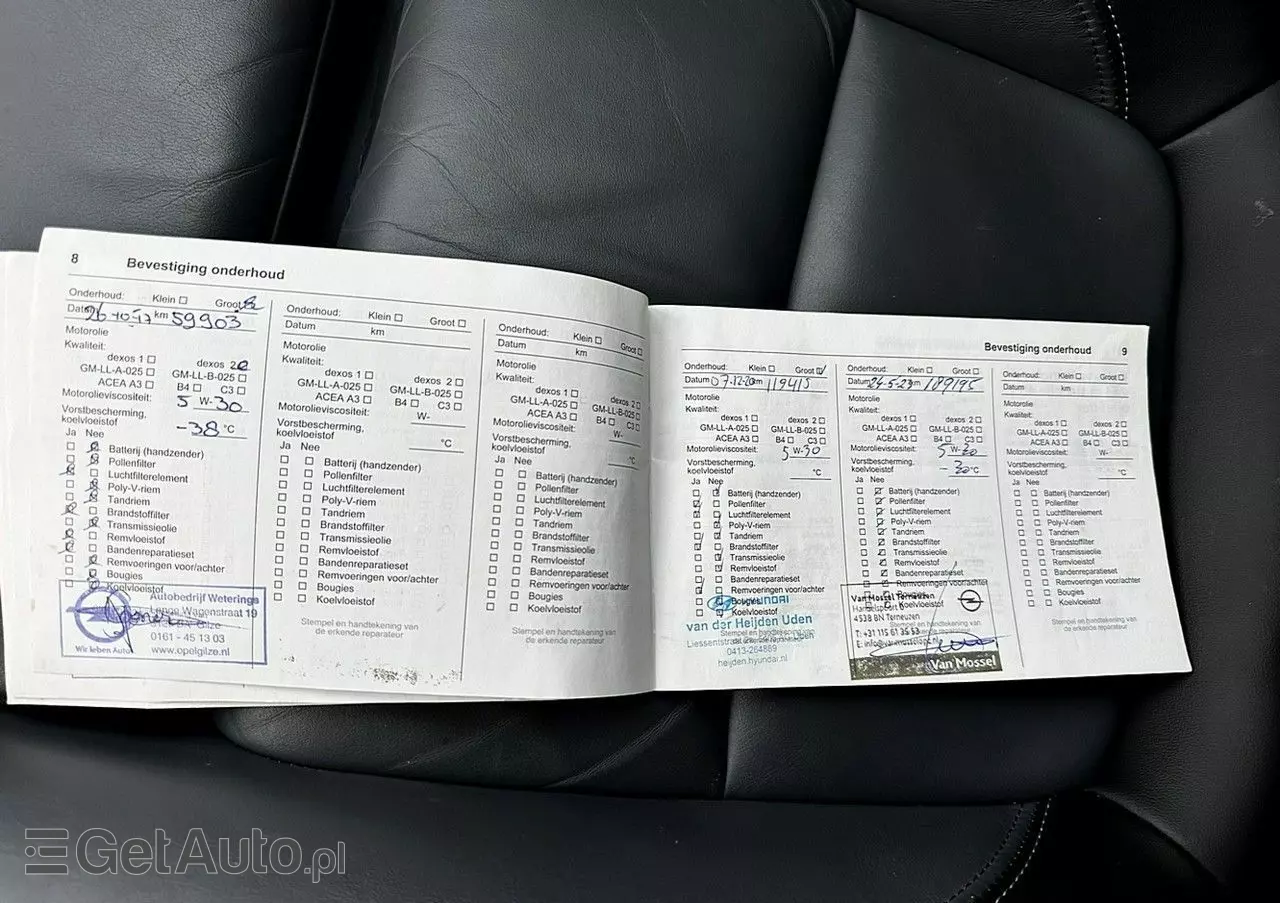 8 Bevestiging onderhoud
Onderhoud: Klein Groot
Datum 26-10-17 km 59903
Motorolie
Kwaliteit:
dexos 1 dexos 2
GM-LL-A-025 GM-LL-B-025
ACEA A3 B4 C3
Motorolieviscositeit: 5 W-30
Vorstbescherming,
koelvloeistof -38 °C
Ja Nee
Batterij (handzender)
Pollenfilter
Luchtfilterelement
Poly-V-riem
Tandriem
Brandstoffilter
Transmissieolie
Remvloeistof
Bandenreparatieset
Remvoeringen voor/achter
Bougies
Koelvloeistof
Autobedrijf Weterings
Lange Wagenstraat 19
Gilze
0161 - 45 13 03
Wir leben Autos
www.opelgilze.nl
Onderhoud: Klein Groot
Datum km
Motorolie
Kwaliteit:
dexos 1 dexos 2
GM-LL-A-025 GM-LL-B-025
ACEA A3 B4 C3
Motorolieviscositeit: W-
Vorstbescherming,
koelvloeistof °C
Ja Nee
Batterij (handzender)
Pollenfilter
Luchtfilterelement
Poly-V-riem
Tandriem
Brandstoffilter
Transmissieolie
Remvloeistof
Bandenreparatieset
Remvoeringen voor/achter
Bougies
Koelvloeistof
Stempel en handtekening van
de erkende reparateur
Onderhoud: Klein Groot
Datum km
Motorolie
Kwaliteit:
dexos 1 dexos 2
GM-LL-A-025 GM-LL-B-025
ACEA A3 B4 C3
Motorolieviscositeit: W-
Vorstbescherming,
koelvloeistof °C
Ja Nee
Batterij (handzender)
Pollenfilter
Luchtfilterelement
Poly-V-riem
Tandriem
Brandstoffilter
Transmissieolie
Remvloeistof
Bandenreparatieset
Remvoeringen voor/achter
Bougies
Koelvloeistof
Stempel en handtekening van
de erkende reparateur
Bevestiging onderhoud 9
Onderhoud: Klein Groot
Datum 07-12-20 km 119415
Motorolie
Kwaliteit:
dexos 1 dexos 2
GM-LL-A-025 GM-LL-B-025
ACEA A3 B4 C3
Motorolieviscositeit: 5 W-30
Vorstbescherming,
koelvloeistof °C
Ja Nee
Batterij (handzender)
Pollenfilter
Luchtfilterelement
Poly-V-riem
Tandriem
Brandstoffilter
Transmissieolie
Remvloeistof
Bandenreparatieset
Remvoeringen voor/achter
Bougies
Koelvloeistof
HYUNDAI
van der Heijden Uden
Stempel en handtekening van
Liessentstraat
0413-264889
heijden.hyundai.nl
Onderhoud: Klein Groot
Datum 24-5-23 km 189195
Motorolie
Kwaliteit:
dexos 1 dexos 2
GM-LL-A-025 GM-LL-B-025
ACEA A3 B4 C3
Motorolieviscositeit: 5 W-30
Vorstbescherming,
koelvloeistof -30 °C
Ja Nee
Batterij (handzender)
Pollenfilter
Luchtfilterelement
Poly-V-riem
Tandriem
Brandstoffilter
Transmissieolie
Remvloeistof
Bandenreparatieset
Remvoeringen voor/achter
Bougies
Koelvloeistof
Van Mossel Terneuzen
4538 BN Terneuzen
Stempel en handtekening van
T: +31 115 61 35 53
Van Mossel
Onderhoud: Klein Groot
Datum km
Motorolie
Kwaliteit:
dexos 1 dexos 2
GM-LL-A-025 GM-LL-B-025
ACEA A3 B4 C3
Motorolieviscositeit: W-
Vorstbescherming,
koelvloeistof °C
Ja Nee
Batterij (handzender)
Pollenfilter
Luchtfilterelement
Poly-V-riem
Tandriem
Brandstoffilter
Transmissieolie
Remvloeistof
Bandenreparatieset
Remvoeringen voor/achter
Bougies
Koelvloeistof
Stempel en handtekening van
de erkende reparateur
GetAuto.pl